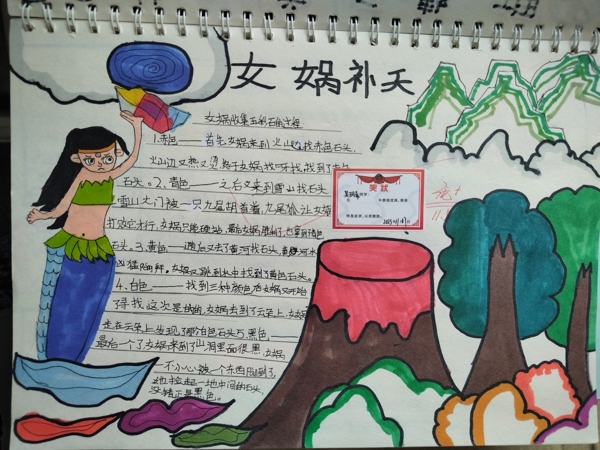 女娲补天
女娲收集五彩石的过程
1.赤色——首先女娲来到火山边找赤色石头,
火山边又热又烫,终于女娲找呀找,找到了赤色
石头。2、青色——之后又来到雪山找石头
雪山大门被一只九尾胡首着,九尾胡让女娲
打败它才行,女娲只能硬战,最后女娲胜利了,也拿到青色
石头。3、黄色——随后又去了黄河找石头,黄河水
女娲又跳到水中找到了黄色石头。
4、白色——找到三种颜色后女娲又开始
了寻找这次是纯白,女娲去到了云朵上,女娲
走在云朵上发现了白色石头 5、黑色——
最后一个了女娲来到了山洞里面很黑,女娲
一不小心被一个东西拌到了
她捡起一地中间的石头,
没错正是黑色。
奖状
优+
11.